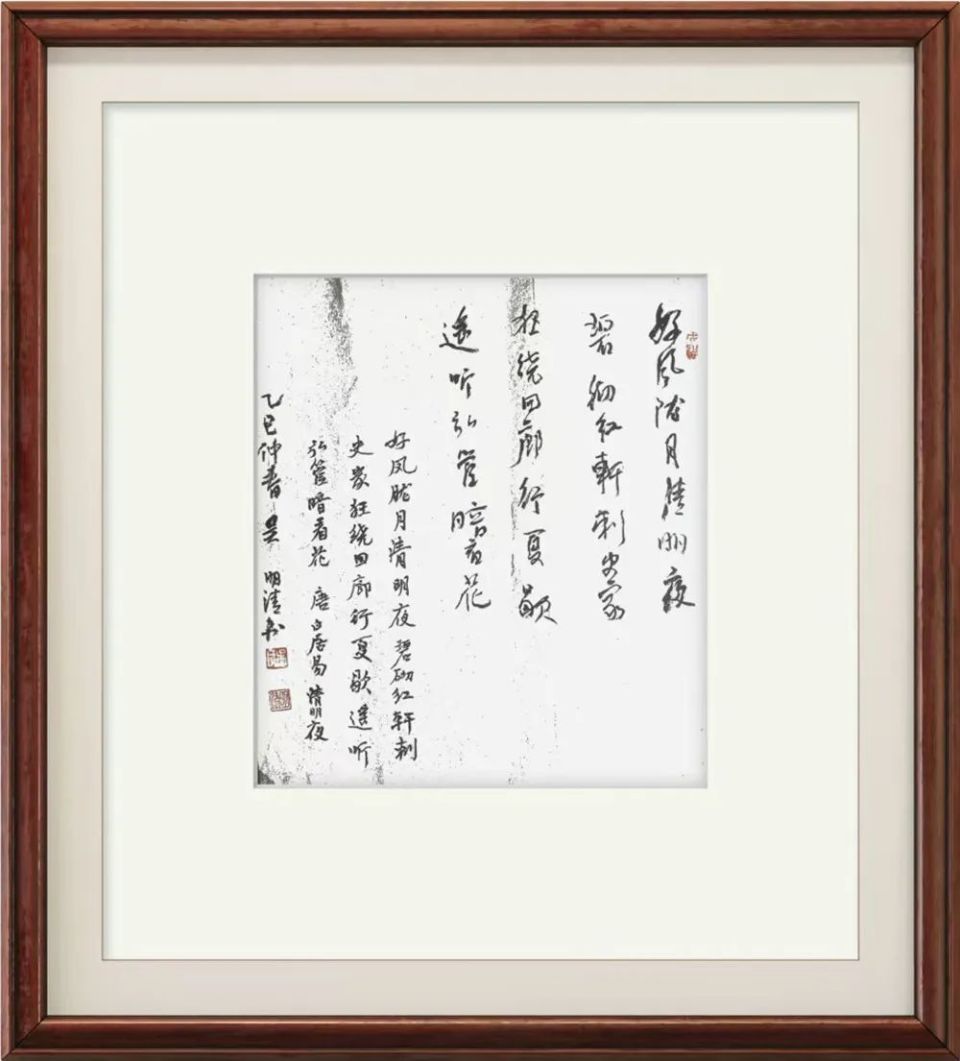 好风胧月清明夜
碧砌红軒刺史家
狂绕回廊行夏歇
遥听弘管暗看花
好风胧月清明夜碧砌红轩刺
史家狂绕回廊行夏歇遥听
弘管暗看花 唐白居易清明夜
乙巳仲春吴明清书